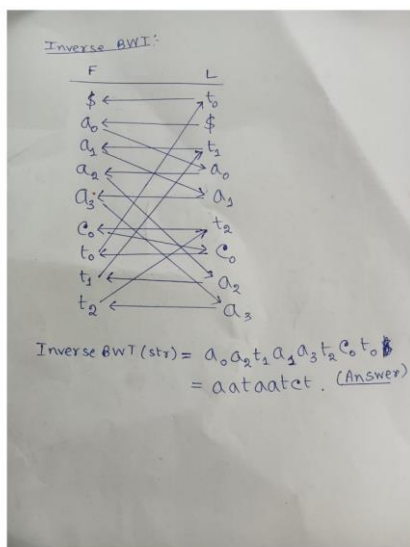 Inverse BWT:
F L
$ t₀
a₀ $
a₁ t₁
a₂ a₀
a₃ a₁
c₀ t₂
t₀ c₀
t₁ a₂
t₂ a₃
Inverse BWT (str) = a₀ a₂ t₁ a₁ a₃ t₂ c₀ t₀
= aataatct. (Answer)